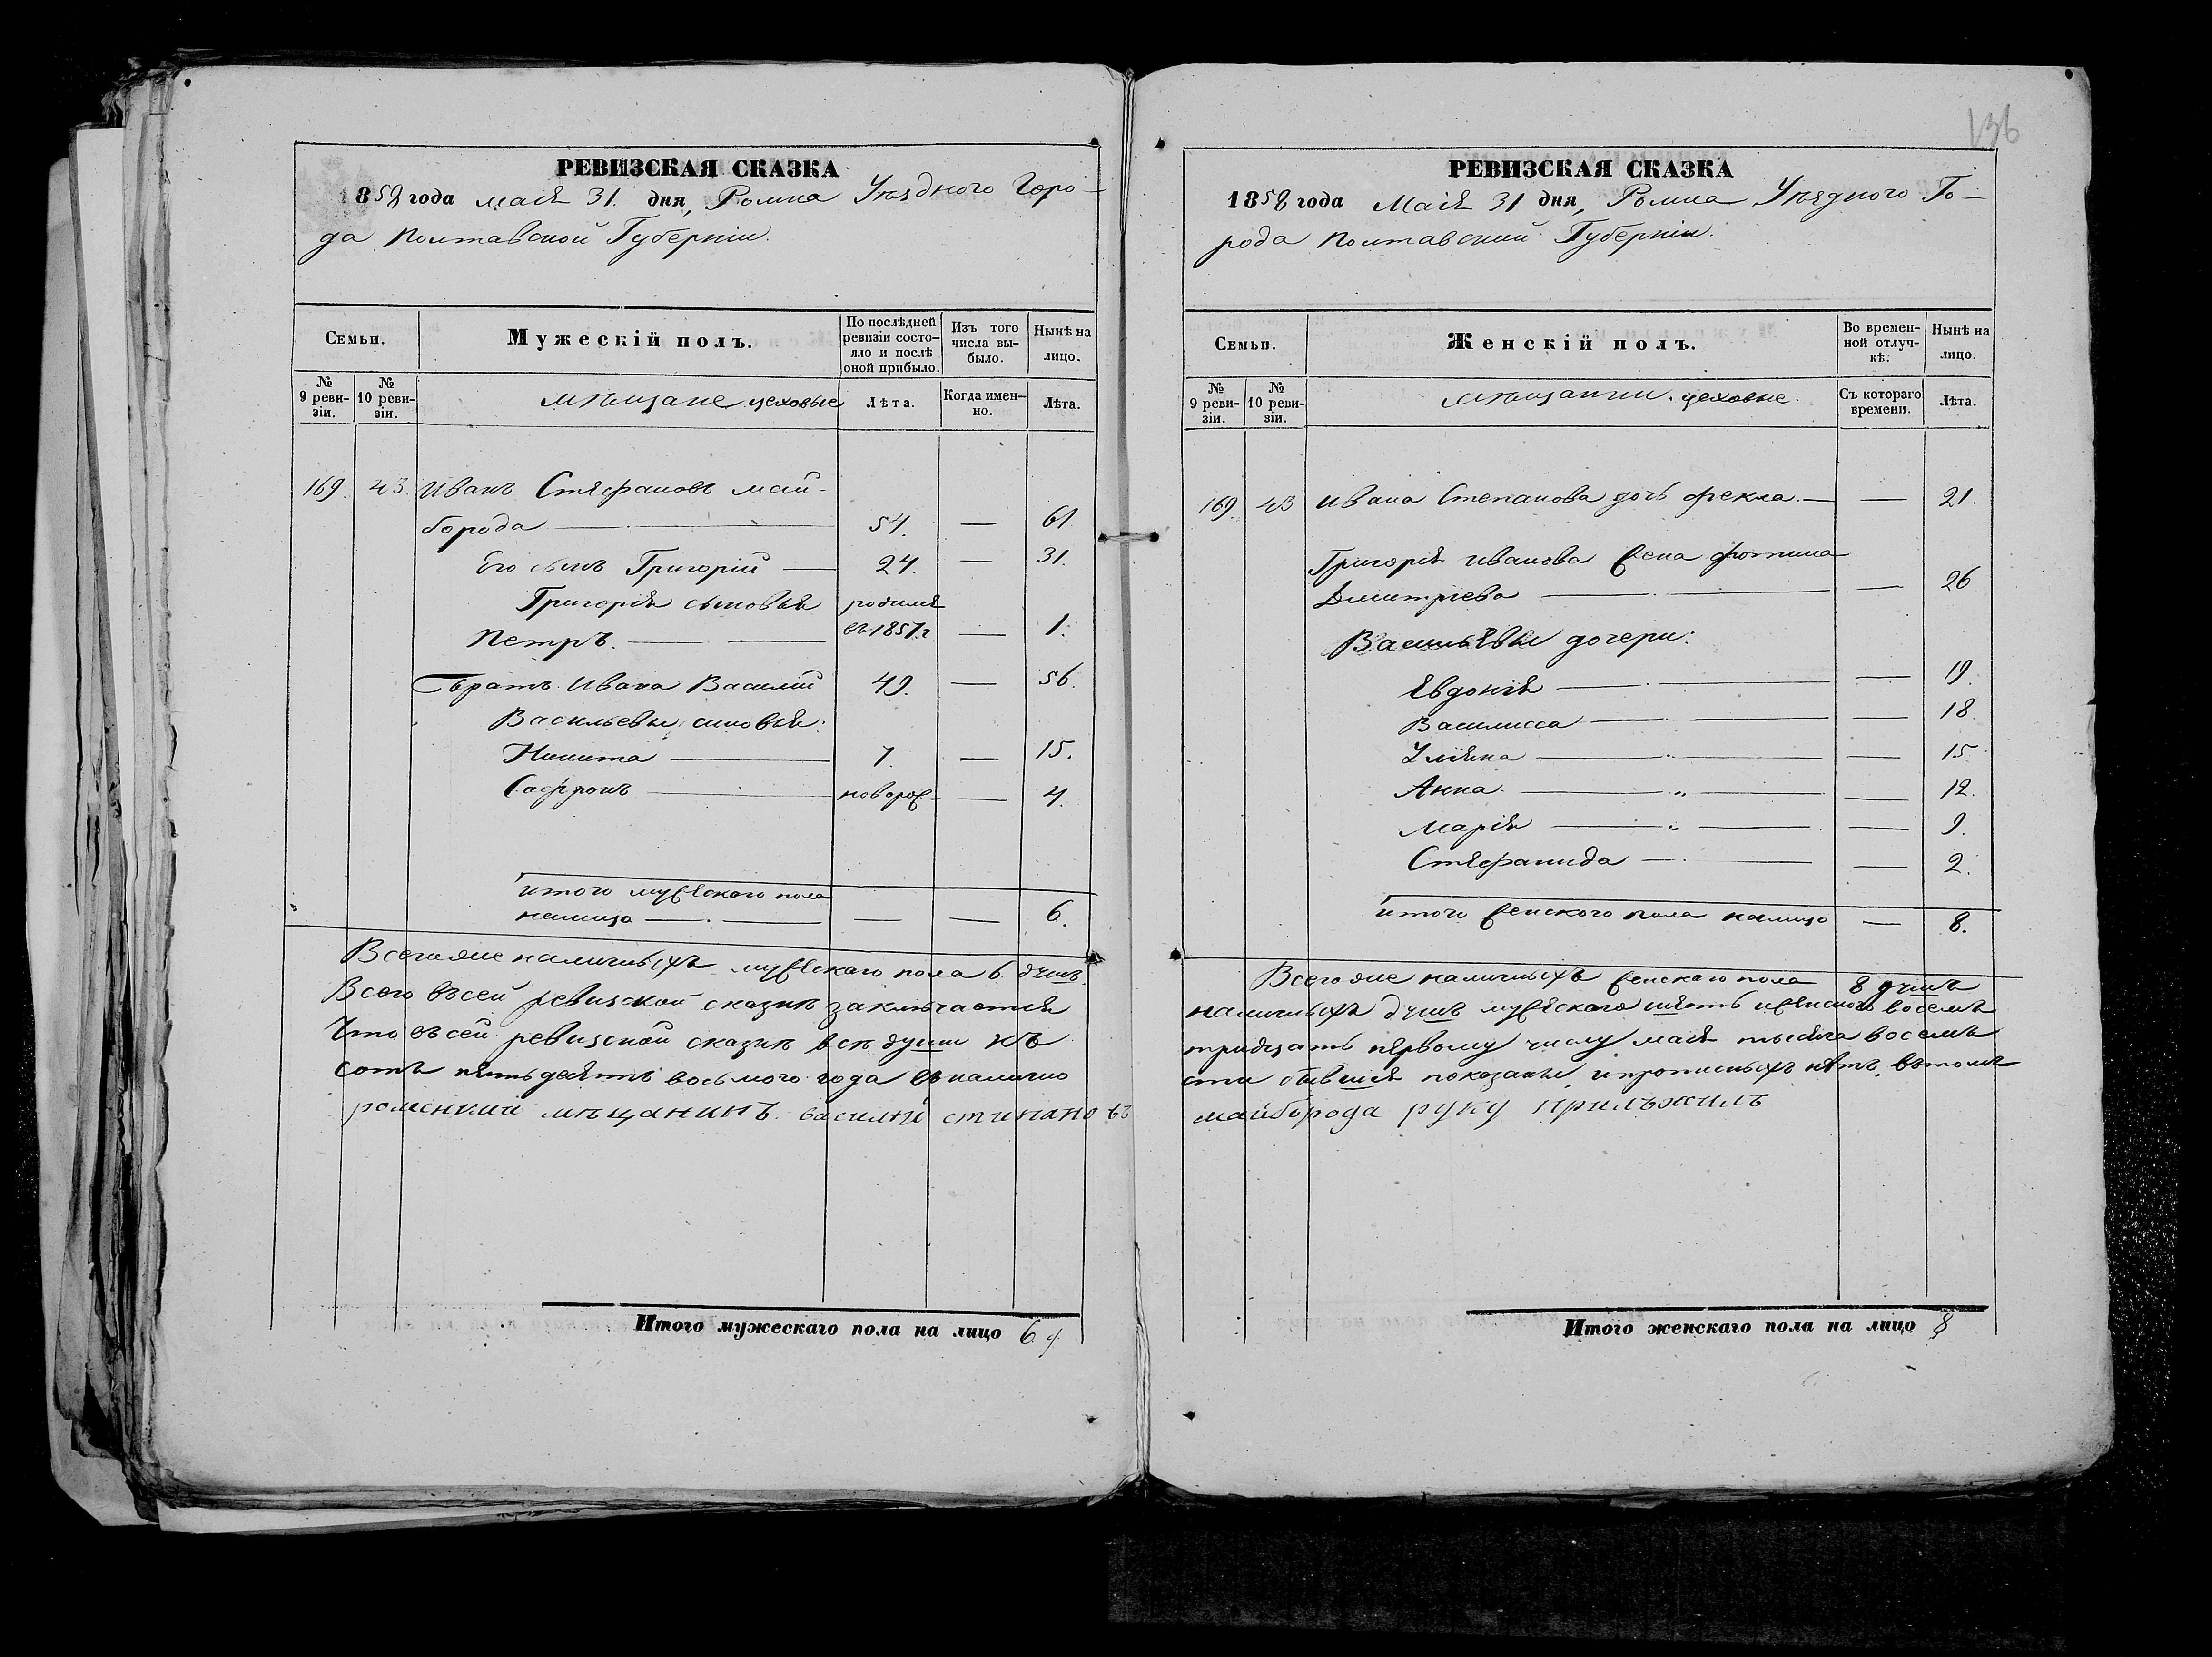 136
РЕВИЗСКАЯ СКАЗКА
1858 года мая 31. дня, Ромна Уѣзднаго Горо-
да Полтавской Губерніи.
Семьи.
Мужескій полъ.
По послѣдней ревизіи состояло и послѣ оной прибыло.
Изъ того числа выбыло.
Нынѣ на лицо.
№ 9 ревизіи.
№ 10 ревизіи.
мѣщане цеховые
Лѣта.
Когда именно.
Лѣта.
169. 43. Иванъ Стефановъ Май-
борода — 54. — 61
Его сынъ Григорій — 24. — 31.
Григорія сыновья родился
Петръ. — въ 1857 г — 1.
Братъ Ивана Василій 49. — 56.
Васильевы сыновья:
Никита — 7. — 15.
Софронъ — новорож- — 4.
Итого мужескаго пола
налицо — — — 6.
Всего же наличныхъ мужескаго пола 6 душъ.
Всего въ сей ревизской сказкѣ заключается
Что въ сей ревизской сказкѣ всѣ души къ
сотъ пятьдесятъ восьмого года въ налично
роменкий мещанинъ василий стипановъ
Итого мужескаго пола на лицо 6
РЕВИЗСКАЯ СКАЗКА
1858 года Мая 31 дня, Ромна Уѣзднаго Го-
рода Полтавской Губерніи.
Семьи.
Женскій полъ.
Во временной отлучкѣ.
Нынѣ на лицо.
№ 9 ревизіи.
№ 10 ревизіи.
мѣщанки цеховые.
Съ котораго времени.
Лѣта.
169. 43 Ивана Степанова дочь Фекла. — — 21.
Григорія Иванова жена Фотина
Дмитріева — — 26
Васильевы дочери:
Евдокія — — 19
Василисса — — 18
Уліяна — — 15
Анна. — — 12.
Марія — — 9.
Стефанида — — 2.
Итого женского пола налицо — 8.
Всего же наличныхъ женскаго пола 8 душъ
наличныхъ душъ мужескаго шесть и женского восемь
тридцать первому числу мая тысяча восемь
сти бывшея показаны, и прописныхъ нѣтъ. въ томъ
майборода руку приложилъ
Итого женскаго пола на лицо 8